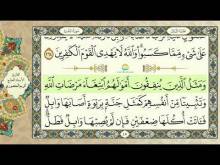 عَلَىٰ شَىْءٍ مِّمَّا كَسَبُوا۟ وَٱللَّهُ لَا يَهْدِى ٱلْقَوْمَ ٱلْكَٰفِرِينَ ٢٦٤
وَمَثَلُ ٱلَّذِينَ يُنفِقُونَ أَمْوَٰلَهُمُ ٱبْتِغَآءَ مَرْضَاتِ ٱللَّهِ
وَتَثْبِيتًا مِّنْ أَنفُسِهِمْ كَمَثَلِ جَنَّةٍۭ بِرَبْوَةٍ أَصَابَهَا وَابِلٌ
فَـَٔاتَتْ أُكُلَهَا ضِعْفَيْنِ فَإِن لَّمْ يُصِبْهَا وَابِلٌ فَطَلٌّ